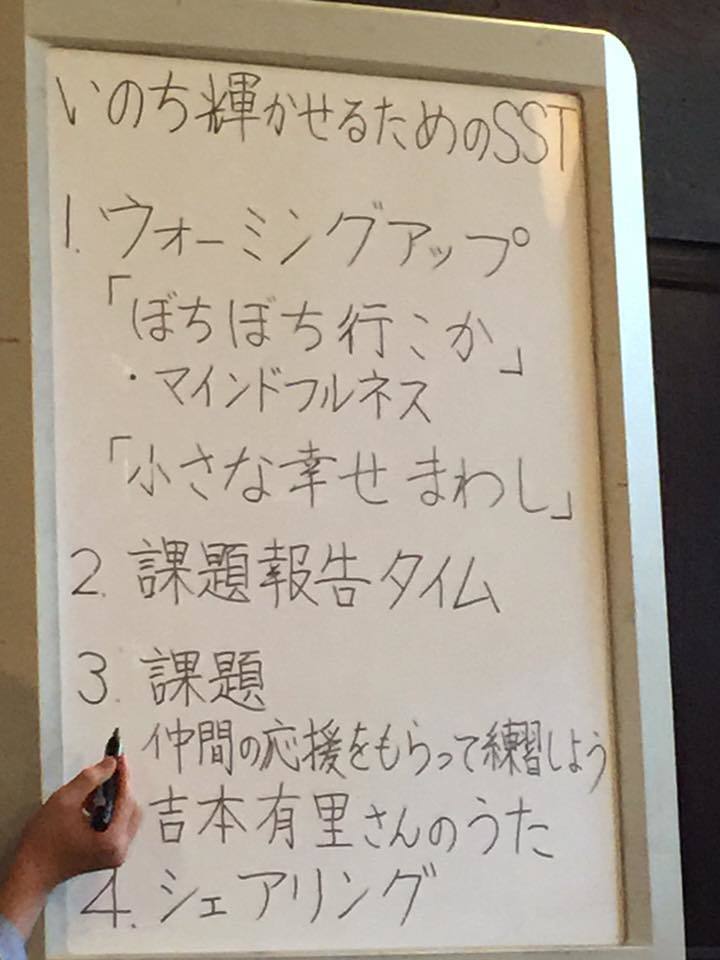 いのち輝かせるためのSST
1. ウォーミングアップ
「ぼちぼち行こか」
・マインドフルネス
「小さな幸せまわし」
2. 課題報告タイム
3. 課題
仲間の応援をもらって練習しよう
吉本有里さんのうた
4. シェアリング